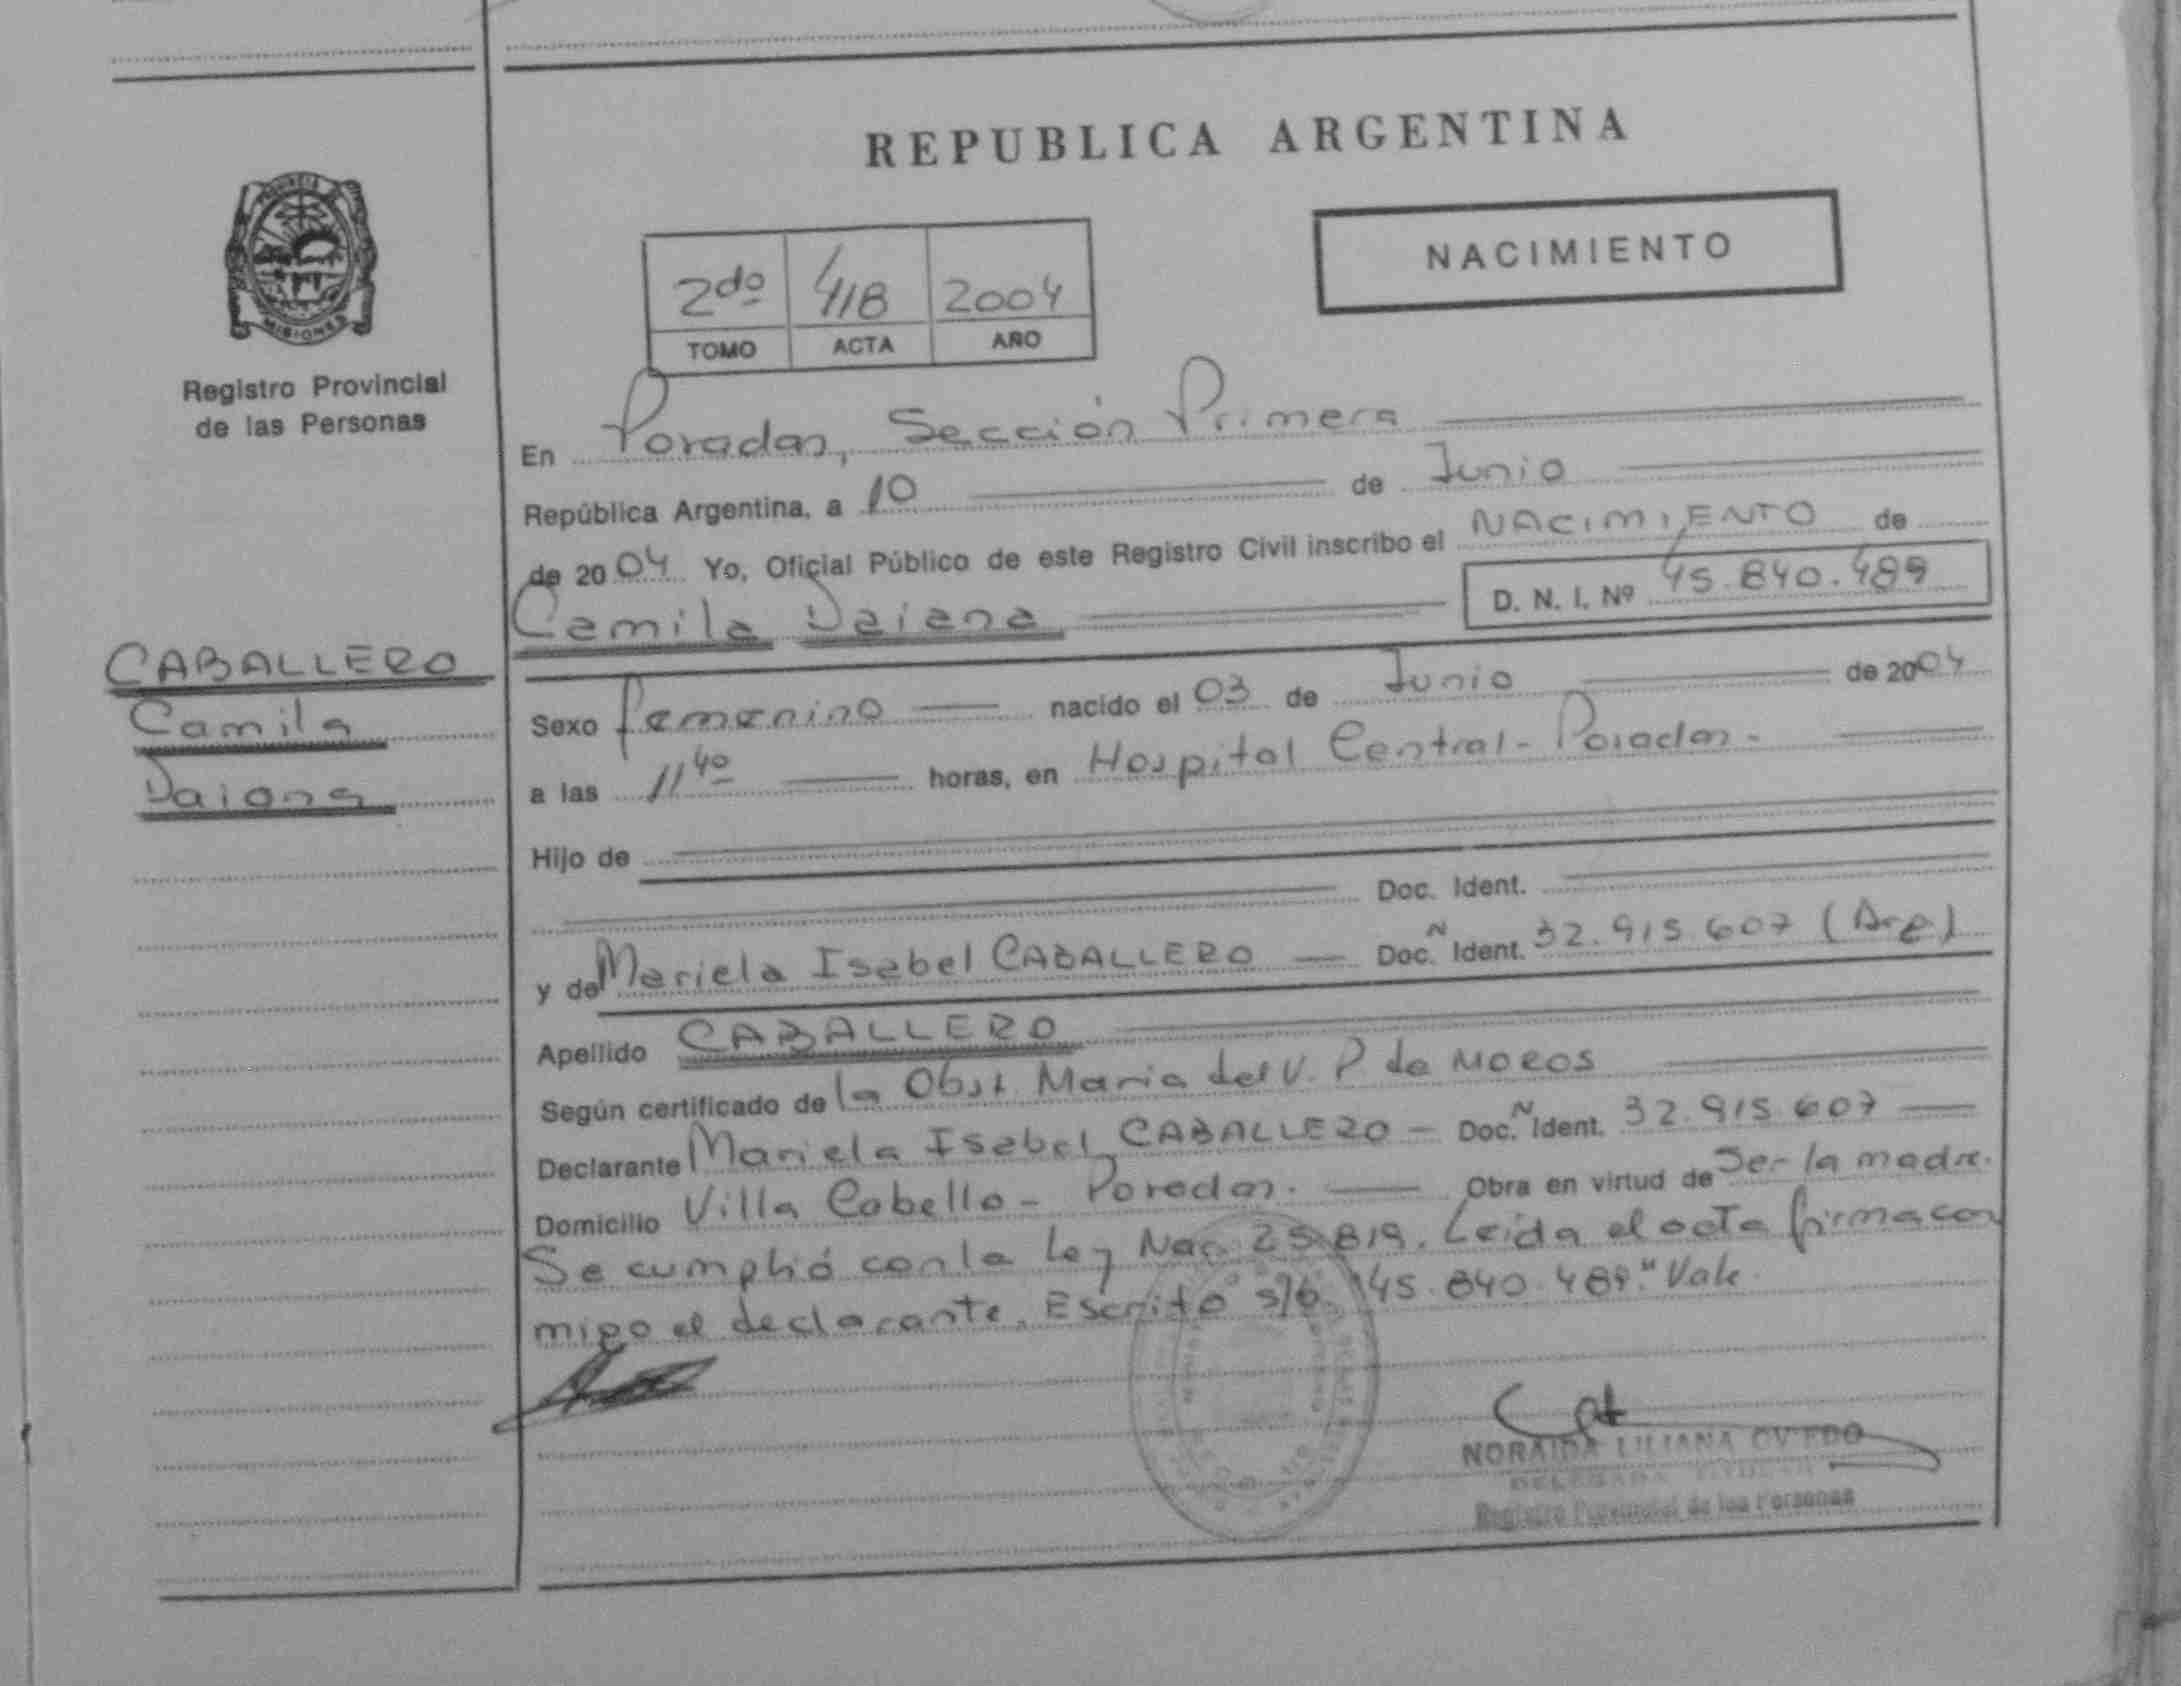 REPUBLICA ARGENTINA
NACIMIENTO
2do 418 2004
TOMO ACTA AÑO
MISIONES
Registro Provincial
de las Personas
CABALLERO
Camila
Daiana
En Posadas, Sección Primera
República Argentina, a 10 de Junio
de 2004 Yo, Oficial Público de este Registro Civil inscribo el NACIMIENTO de
Camila Daiana D. N. I. Nº 45.840.489
Sexo femenino nacido el 03 de Junio de 2004
a las 11 40 horas, en Hospital Central - Posadas -
Hijo de
Doc. Ident.
y de Mariela Isabel CABALLERO — Doc. N Ident. 32.915.607 (Arg)
Apellido CABALLERO
Según certificado de la Obst. Maria del V. P de MOROS
Declarante Mariela Isabel CABALLERO — Doc. N Ident. 32.915.607
Domicilio Villa Cabello - Posadas. — Obra en virtud de Ser la madre.
Se cumplió con la Ley Nac. 25.819. Leida el acta firma con
migo el declarante. Escrito s/b. "45.840.489." Vale.
NORAIDA LILIANA OVIEDO
DELEGADA TITULAR
Registro Provincial de las Personas